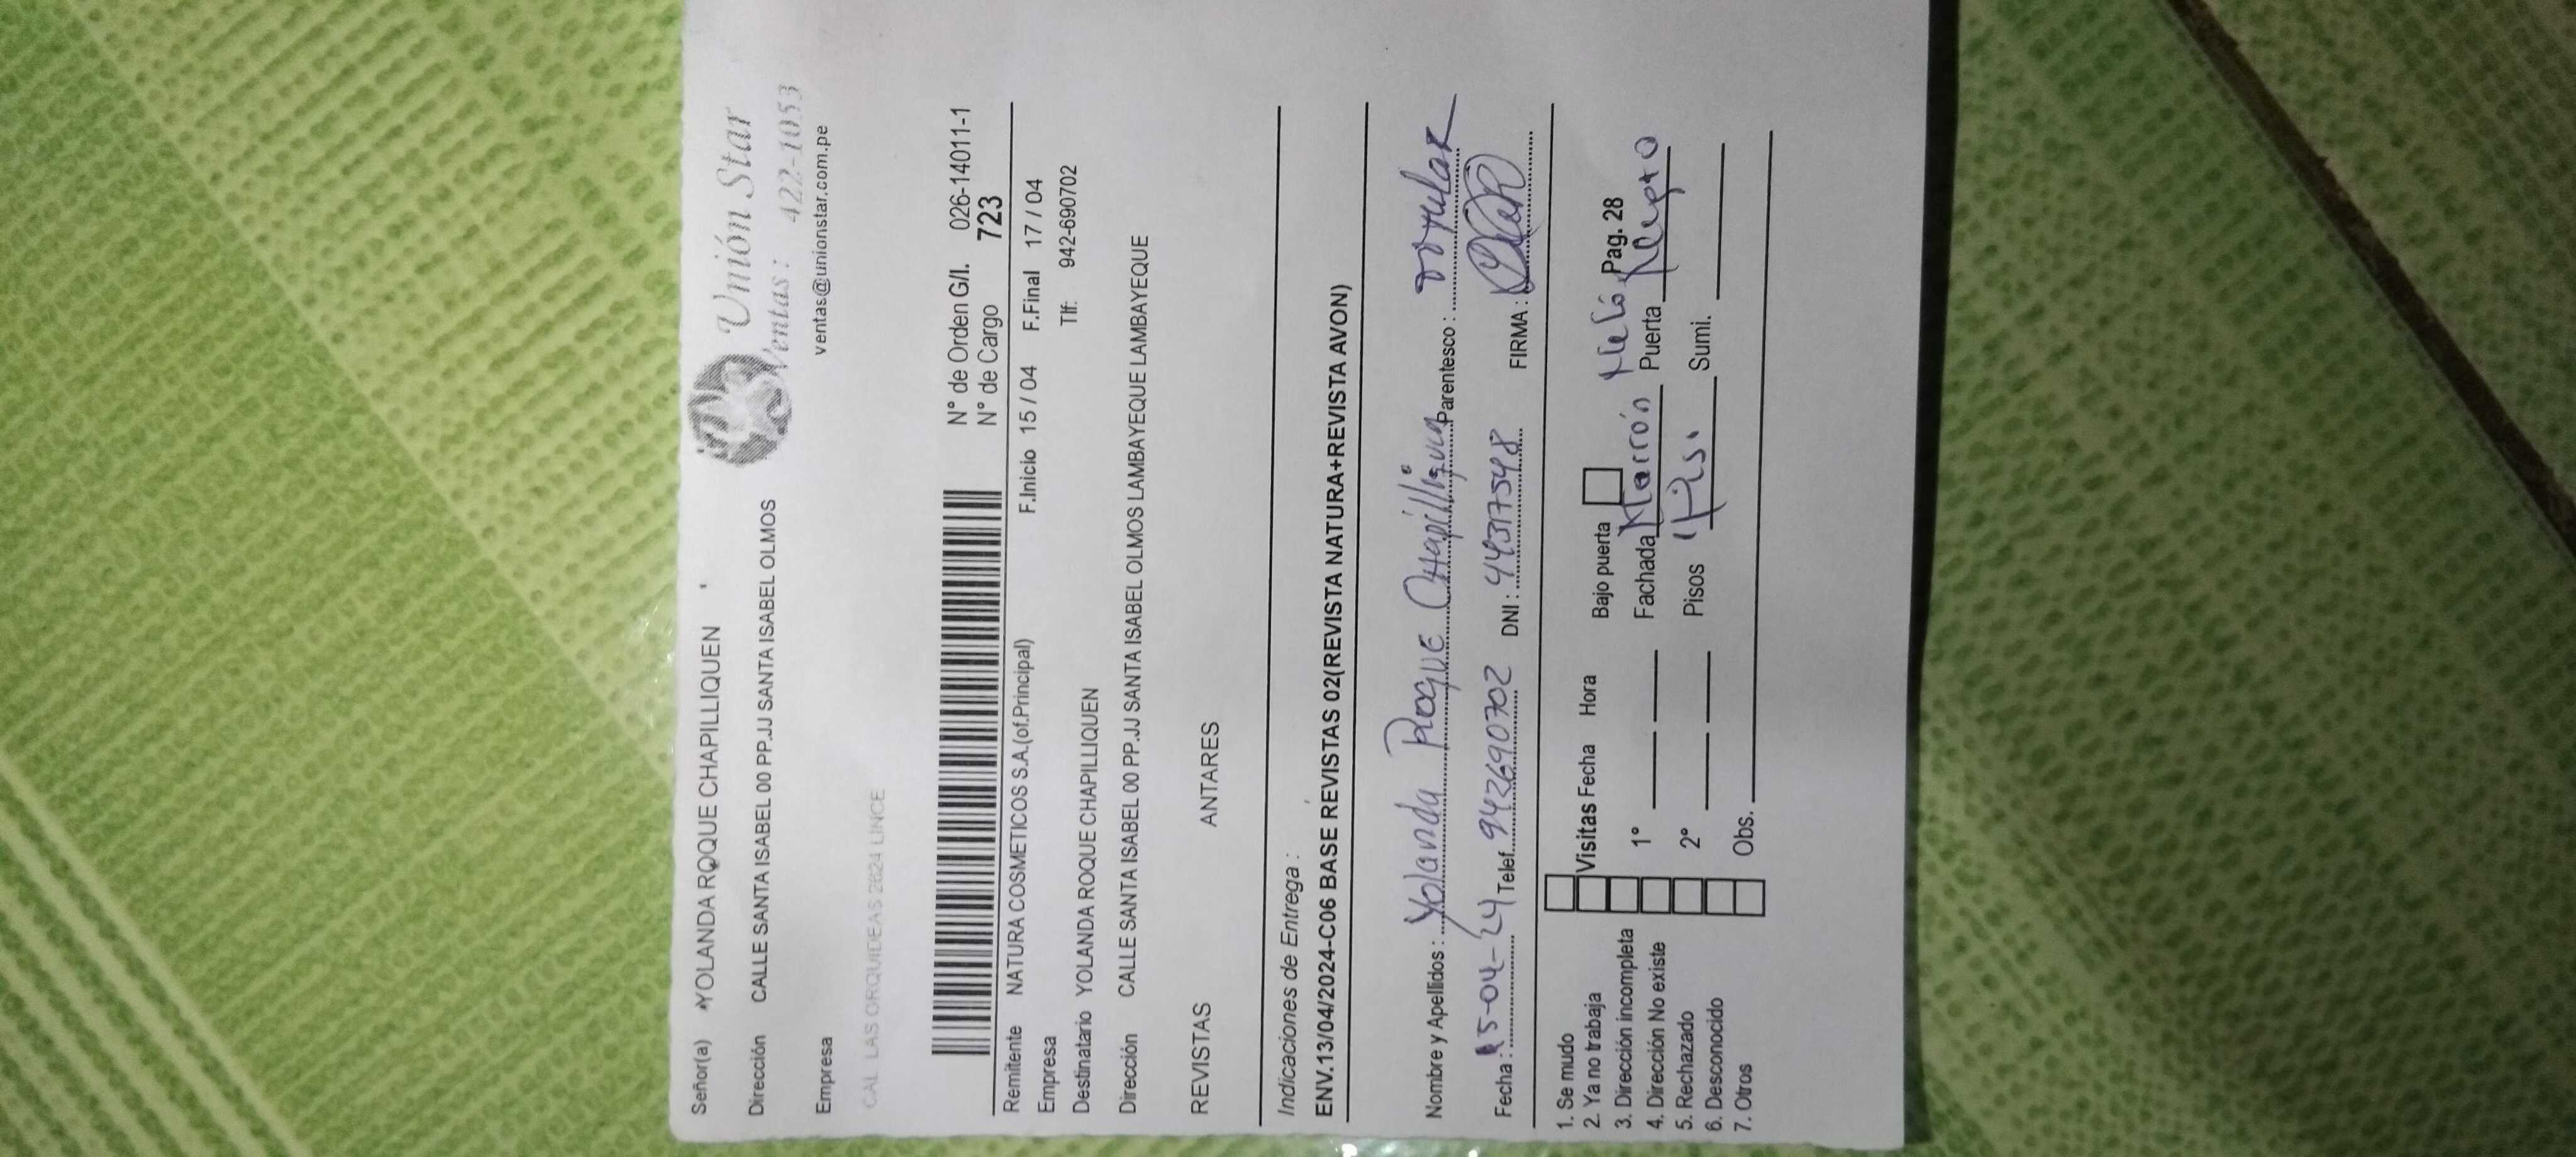 Señor(a) YOLANDA ROQUE CHAPILLIQUEN
Unión Star
Dirección CALLE SANTA ISABEL 00 PP.JJ SANTA ISABEL OLMOS
Ventas: 422-1053
Empresa
ventas@unionstar.com.pe
CAL LAS ORQUIDEAS 2624 LINCE
N° de Orden G/I. 026-14011-1
N° de Cargo 723
Remitente NATURA COSMETICOS S.A.(of.Principal) F.Inicio 15 / 04 F.Final 17 / 04
Empresa Tlf: 942-690702
Destinatario YOLANDA ROQUE CHAPILLIQUEN
Dirección CALLE SANTA ISABEL 00 PP.JJ SANTA ISABEL OLMOS LAMBAYEQUE LAMBAYEQUE
REVISTAS ANTARES
Indicaciones de Entrega :
ENV.13/04/2024-C06 BASE REVISTAS 02(REVISTA NATURA+REVISTA AVON)
Nombre y Apellidos : Yolanda Roque Parentesco :
Fecha : 15-04-24 Telef. 942690702 DNI : 44317548 FIRMA :
1. Se mudo
2. Ya no trabaja Visitas Fecha Hora Bajo puerta Pag. 28
3. Dirección incompleta
4. Dirección No existe 1° Fachada Marrón Puerta
5. Rechazado
6. Desconocido 2° Pisos 1 Sumi.
7. Otros Obs.